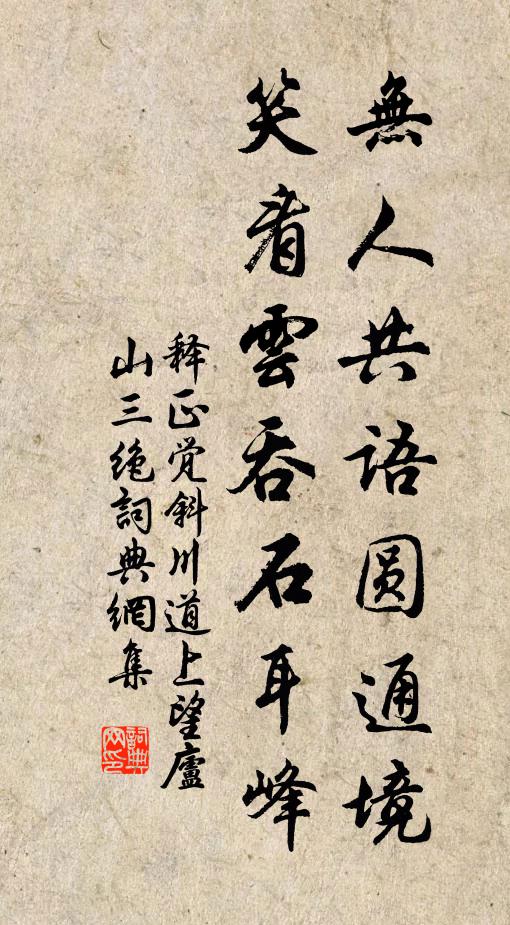 無人共語圆通境
笑看雲吞石耳峰
释正觉斜川道上望廬
山三绝詞典網集
詞典
网印